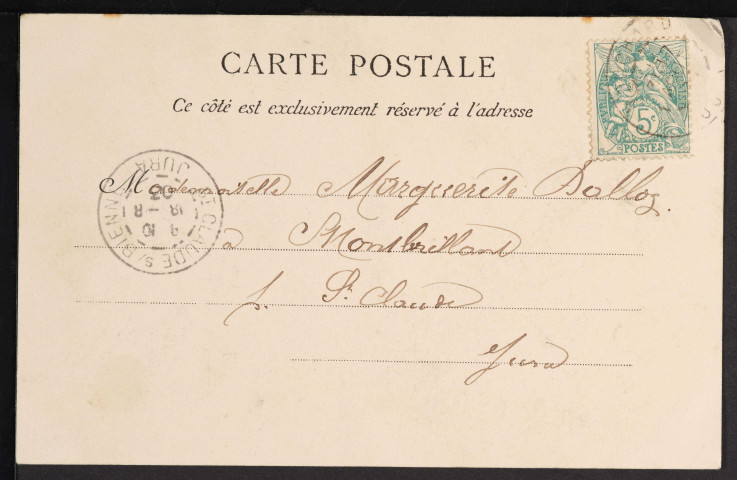 CARTE POSTALE
Ce côté est exclusivement réservé à l'adresse
5c
POSTES
Mademoiselle Marguerite Dalloz
à Montbrillant
p. St Claude
Jura
ST CLAUDE S/ BIENNE
JURA